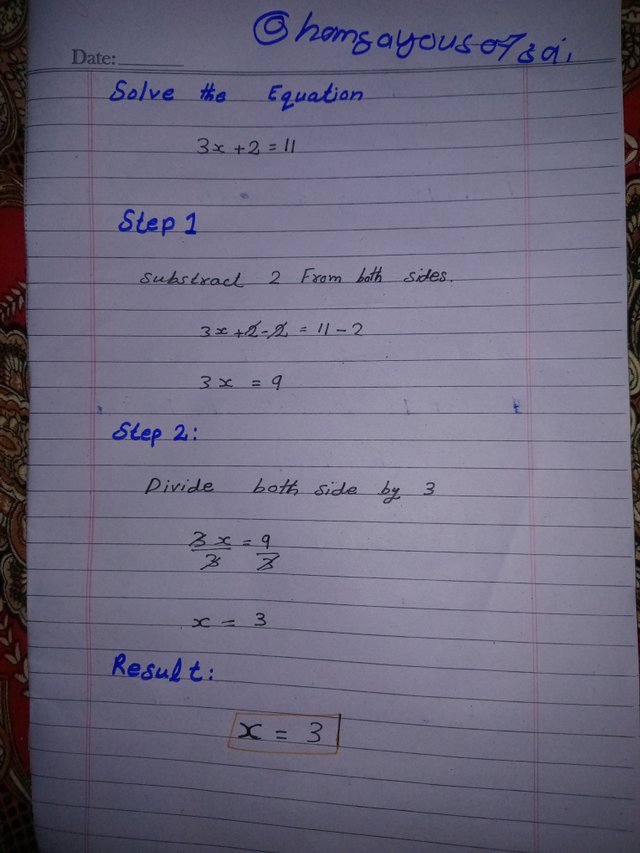 Date:
Solve the Equation
3x + 2 = 11
Step 1
Substract 2 From both sides.
3x + 2 - 2 = 11 - 2
3x = 9
Step 2:
Divide both side by 3
3x/3 = 9/3
x = 3
Result:
x = 3